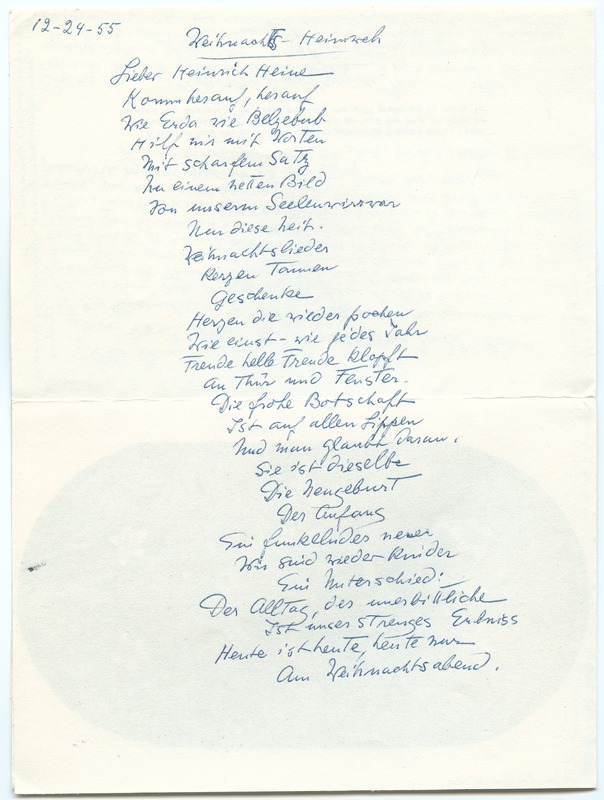 12-24-55
Weihnachts-Heimweh
Lieber Heinrich Heine
Komm herauf, herauf
Wie Erda wie Belzebub
Hilf mir mit Worten
Mit scharfem Satz
Zu einem netten Bild
Von unserm Seelenwirrwar
Nun diese Zeit.
Weihnachtslieder
Kerzen Tannen
Geschenke
Herzen die wieder pochen
Wie einst - wie jedes Jahr
Freude helle Freude klopft
An Thür und Fenster.
Die frohe Botschaft
Ist auf allen Lippen
Und man glaubt daran.
Sie ist dieselbe
Die Neugeburt
Der Anfang
Ein funkelndes neues
Wir sind wieder Kinder
Ein Unterschied:
Der Alltag, der unerbittliche
Ist unser strenges
Heute ist heute, heute nur
Am Weihnachtsabend.